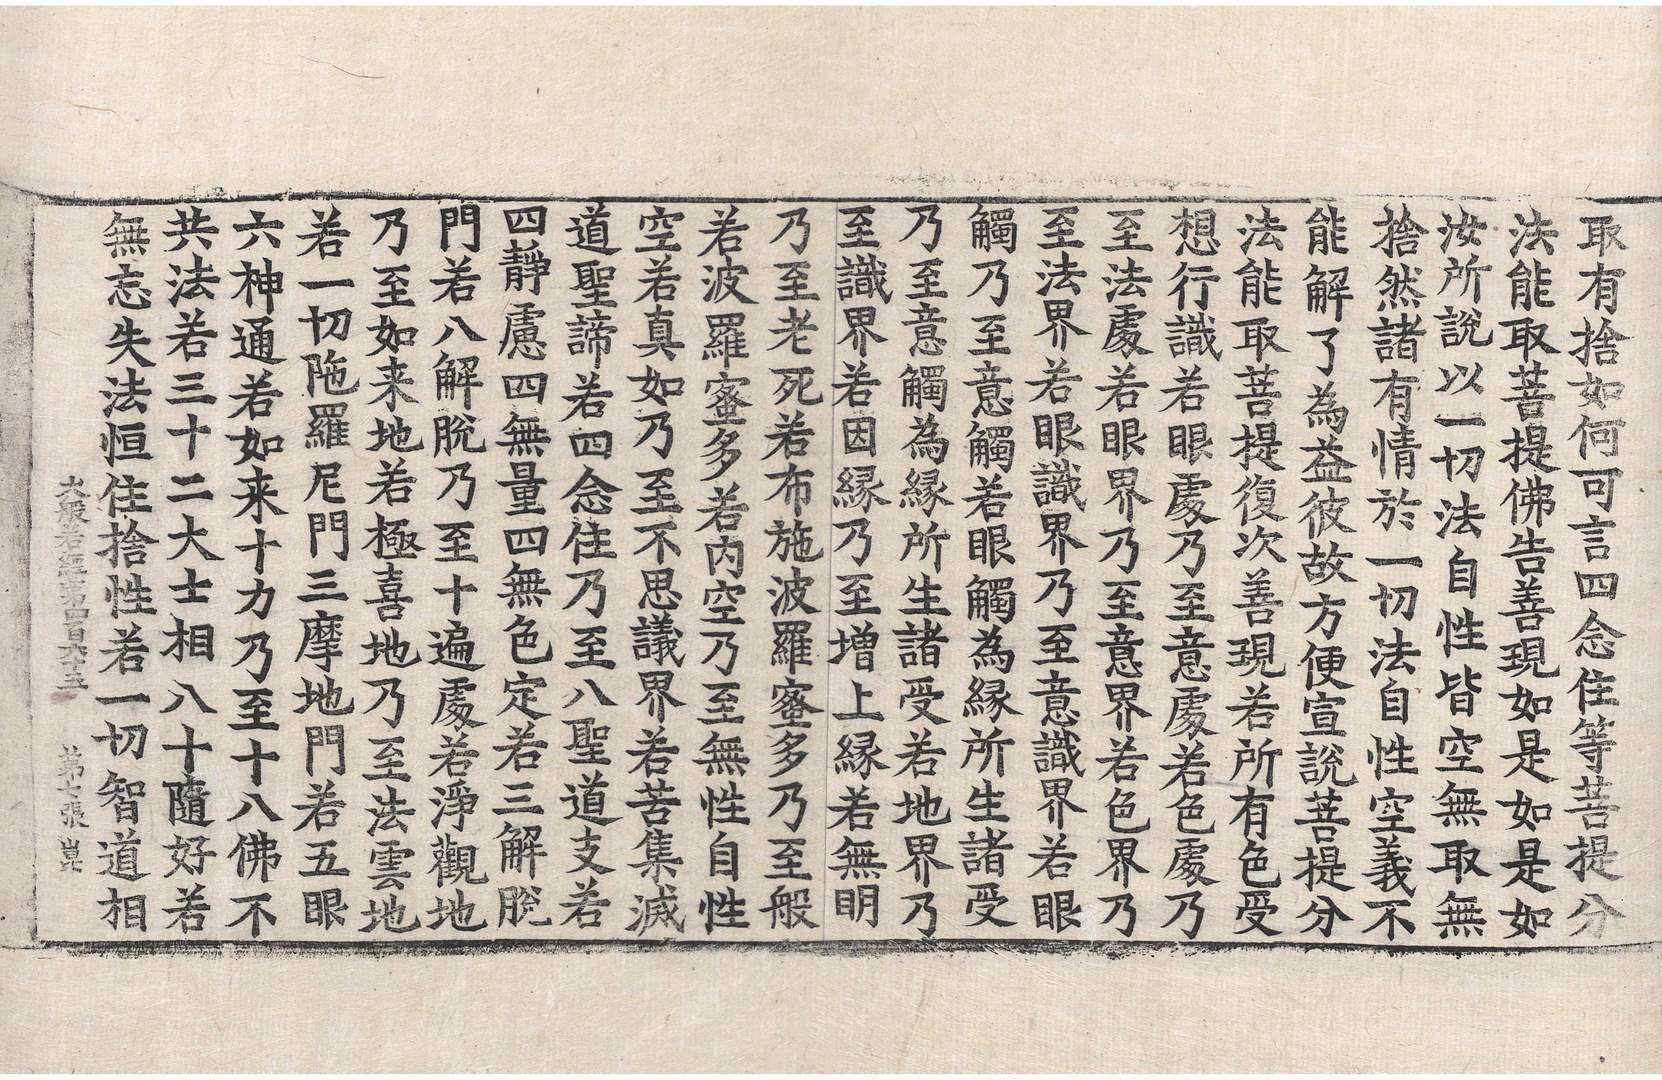 取有捨如何可言四念住等菩提分
法能取菩提佛告善現如是如是如
汝所說以一切法自性皆空無取無
捨然諸有情於一切法自性空義不
能解了為益彼故方便宣說菩提分
法能取菩提復次善現若所有色受
想行識若眼處乃至意處若色處乃
至法處若眼界乃至意界若色界乃
至法界若眼識界乃至意識界若眼
觸乃至意觸若眼觸為緣所生諸受
乃至意觸為緣所生諸受若地界乃
至識界若因緣乃至增上緣若無明
乃至老死若布施波羅蜜多乃至般
若波羅蜜多若內空乃至無性自性
空若真如乃至不思議界若苦集滅
道聖諦若四念住乃至八聖道支若
四靜慮四無量四無色定若三解脫
門若八解脫乃至十遍處若淨觀地
乃至如来地若極喜地乃至法雲地
若一切陁羅尼門三摩地門若五眼
六神通若如来十力乃至十八佛不
共法若三十二大士相八十隨好若
無忘失法恒住捨性若一切智道相
大般若經第四百六十五 第七張 崑